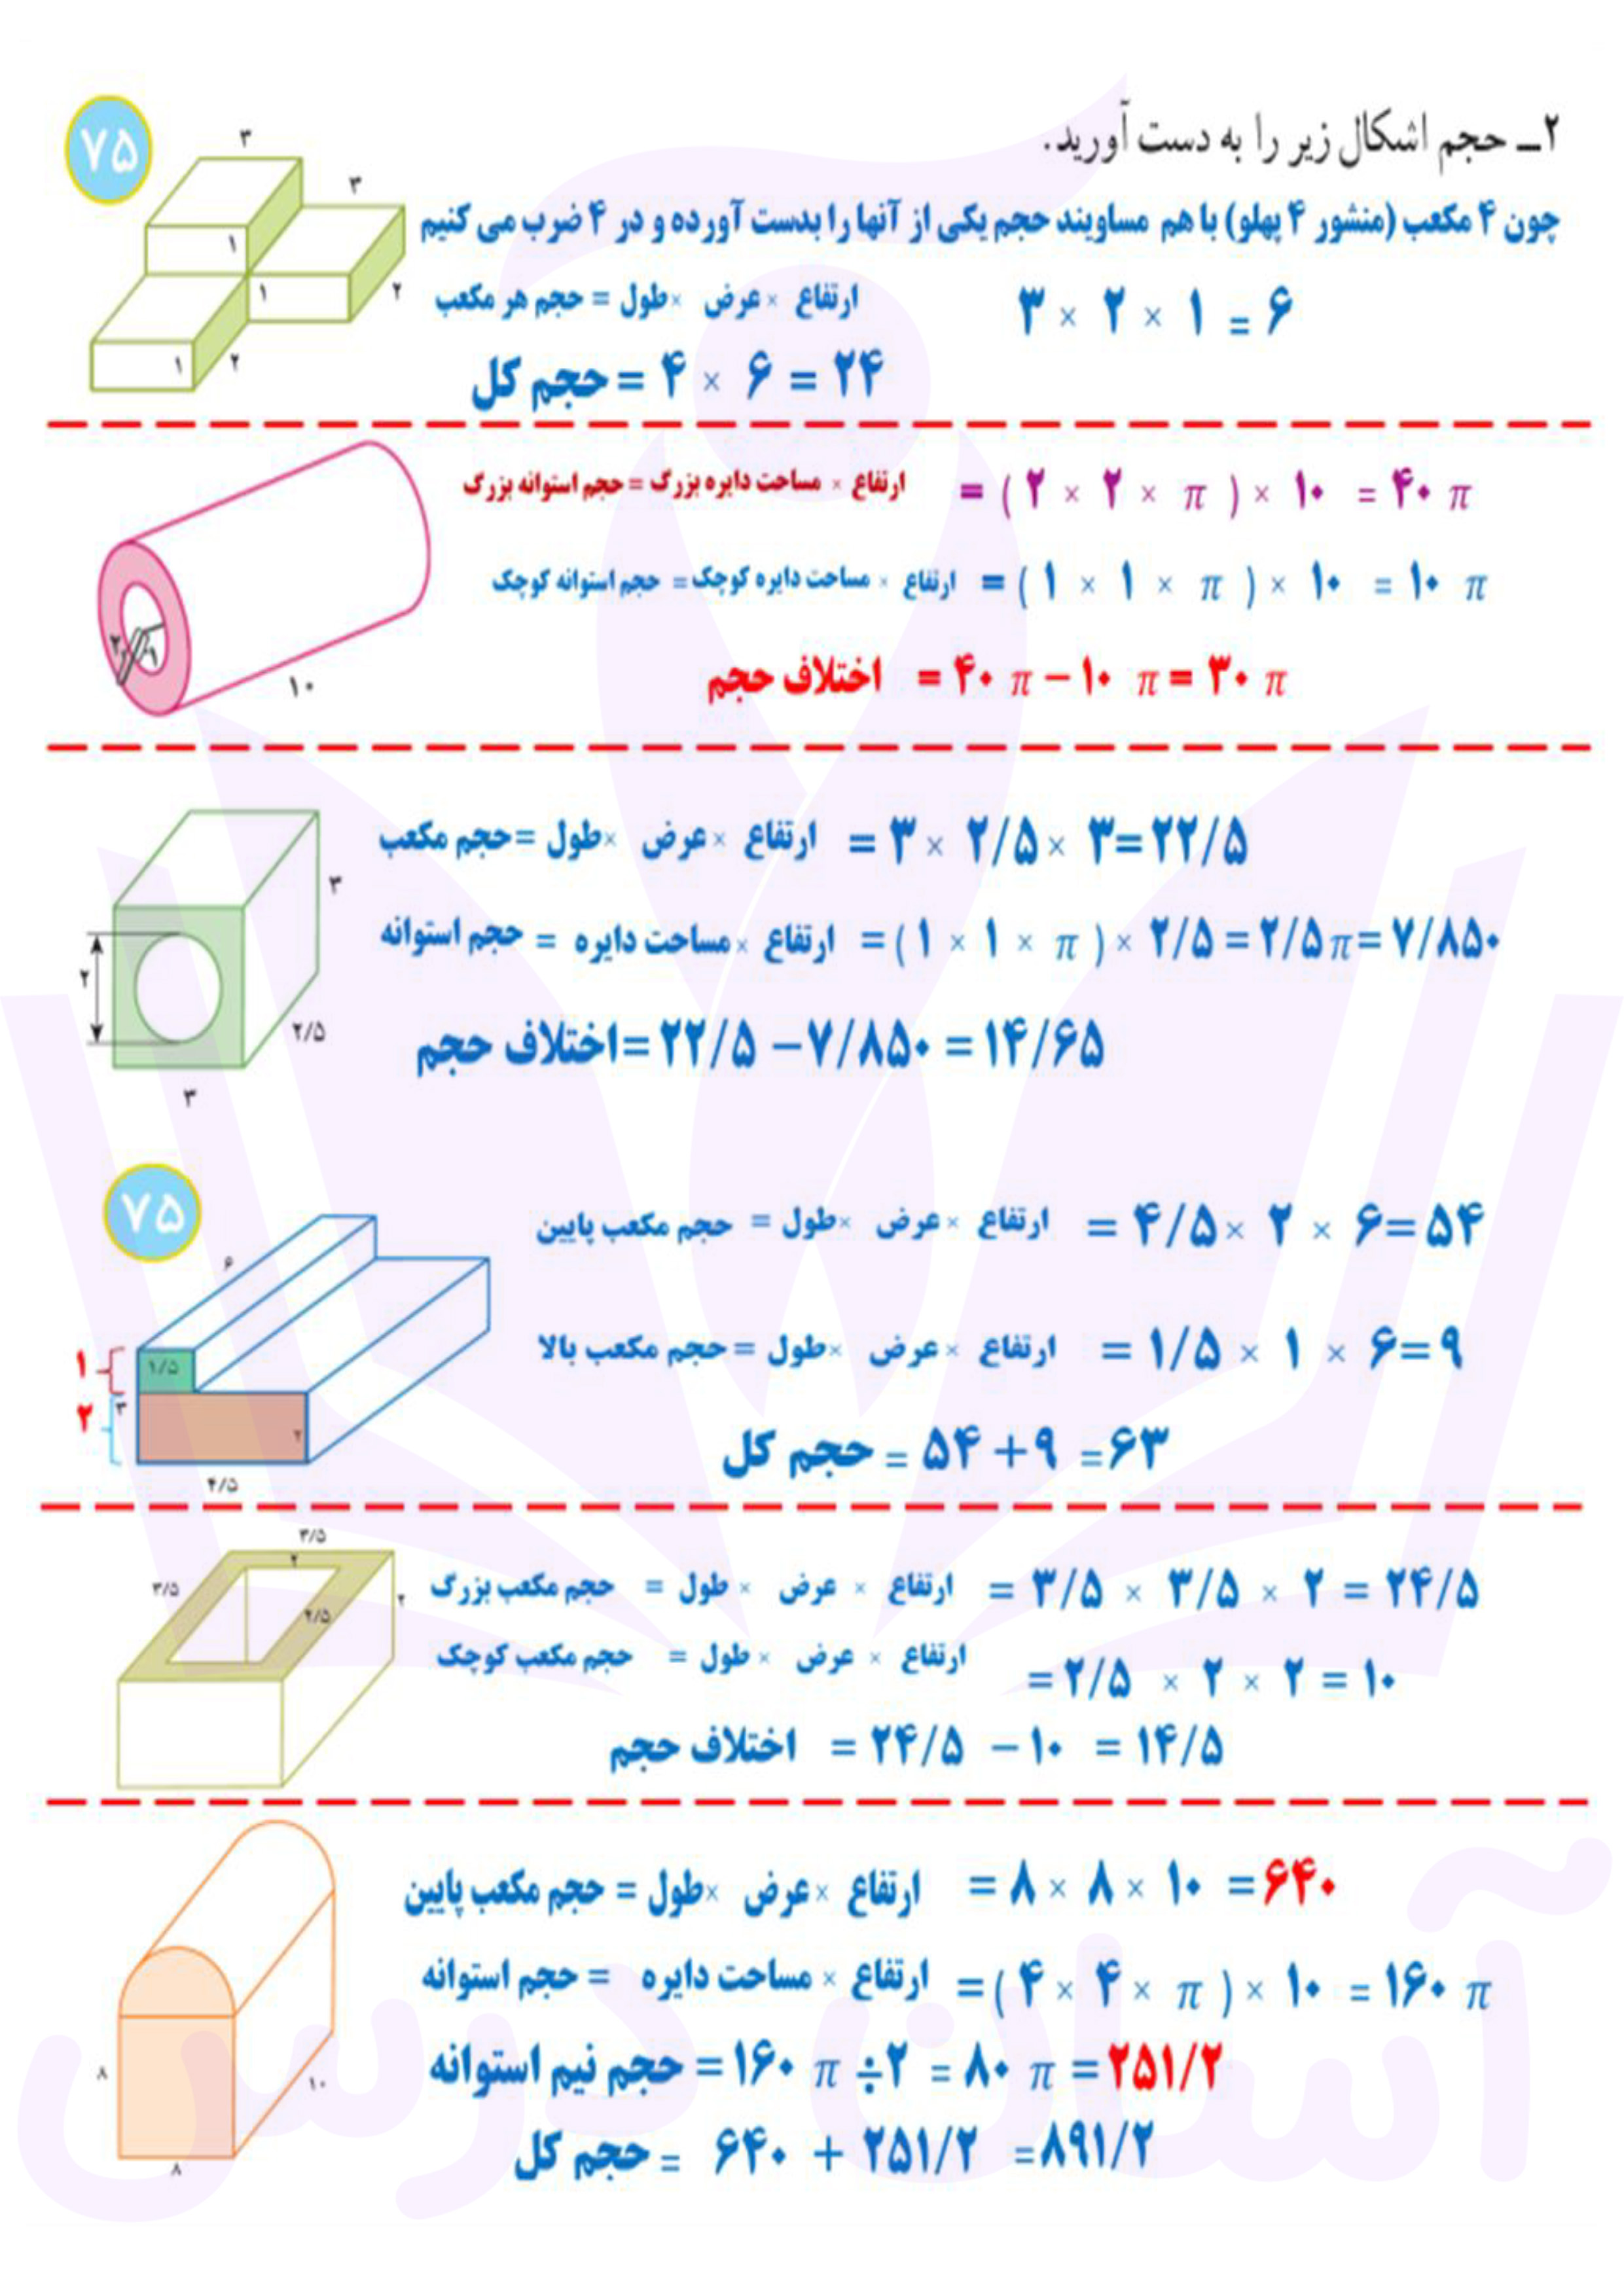 ۲ــ حجم اشکال زیر را به دست آورید.
۷۵
چون ۴ مکعب (منشور ۴ پهلو) با هم مساویند حجم یکی از آنها را بدست آورده و در ۴ ضرب می کنیم
۳
۳
۱
۱
۲
۱
۲
ارتفاع × عرض × طول = حجم هر مکعب
۳ × ۲ × ۱ = ۶
حجم کل = ۴ × ۶ = ۲۴
ارتفاع × مساحت دایره بزرگ = حجم استوانه بزرگ
= ( ۲ × ۲ × π ) × ۱۰ = ۴۰ π
ارتفاع × مساحت دایره کوچک = حجم استوانه کوچک
= ( ۱ × ۱ × π ) × ۱۰ = ۱۰ π
۲
۱
۱۰
اختلاف حجم = ۴۰ π − ۱۰ π = ۳۰ π
ارتفاع × عرض × طول = حجم مکعب
= ۳ × ۲/۵ × ۳=۲۲/۵
۳
ارتفاع × مساحت دایره = حجم استوانه
= ( ۱ × ۱ × π ) × ۲/۵ = ۲/۵ π = ۷/۸۵۰
۲
۲/۵
۳
اختلاف حجم = ۲۲/۵ − ۷/۸۵۰ = ۱۴/۶۵
۷۵
ارتفاع × عرض × طول = حجم مکعب پایین
= ۴/۵ × ۲ × ۶=۵۴
۶
ارتفاع × عرض × طول = حجم مکعب بالا
= ۱/۵ × ۱ × ۶=۹
۱
۱/۵
۲
۳
۲
۴/۵
حجم کل = ۵۴ + ۹ =۶۳
۳/۵
۲
۳/۵
۲/۵
۲
ارتفاع × عرض × طول = حجم مکعب بزرگ
= ۳/۵ × ۳/۵ × ۲ = ۲۴/۵
ارتفاع × عرض × طول = حجم مکعب کوچک
= ۲/۵ × ۲ × ۲ = ۱۰
اختلاف حجم = ۲۴/۵ − ۱۰ = ۱۴/۵
ارتفاع × عرض × طول = حجم مکعب پایین
= ۸ × ۸ × ۱۰ = ۶۴۰
ارتفاع × مساحت دایره = حجم استوانه
= ( ۴ × ۴ × π ) × ۱۰ = ۱۶۰ π
۸
۱۰
۸
حجم نیم استوانه = ۱۶۰ π ÷ ۲ = ۸۰ π = ۲۵۱/۲
حجم کل = ۶۴۰ + ۲۵۱/۲ = ۸۹۱/۲
آسان درس